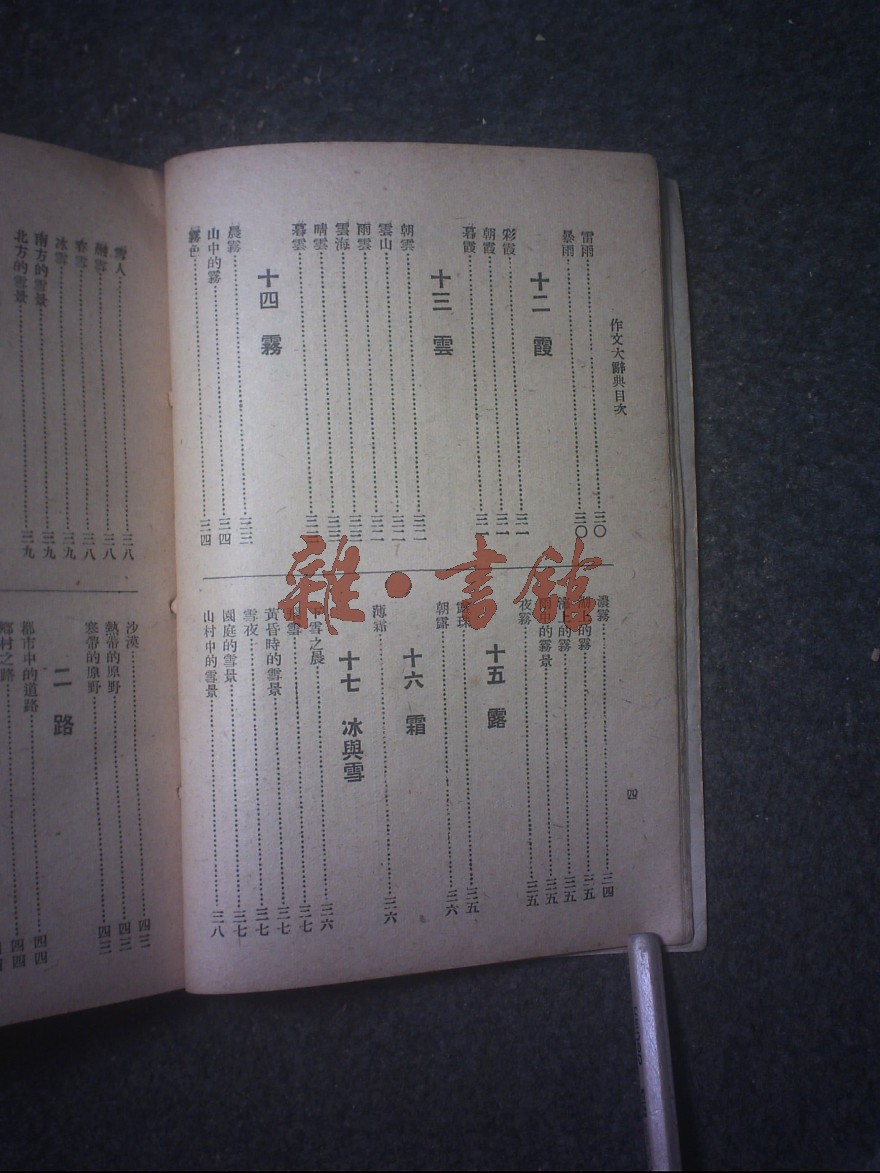 作文大辭典目次
四
雷雨 三〇
暴雨 三〇
十二 霞
彩霞 三一
朝霞 三一
暮霞 三一
十三 雲
朝雲 三二
雲山 三二
雨雲 三二
雲海 三三
晴雲 三三
暮雲
十四 霧
晨霧 三三
山中的霧 三四
霧色 三四
濃霧 三四
湖上的霧 三五
的霧 三五
中的霧景 三五
夜霧 三五
十五 露
珠 三五
朝露 三六
十六 霜
薄霜 三六
十七 冰與雪
下雪之晨 三六
雪 三七
黃昏時的雪景 三七
雪夜 三七
園庭的雪景 三七
山村中的雪景 三八
雪人 三八
雪 三八
春雪 三八
冰雪 三九
南方的雪景 三九
北方的雪景 三九
沙漠 四三
熱帶的原野 四三
寒帶的原野 四三
二 路
都市中的道路 四四
鄉村之路 四四
雜·書館